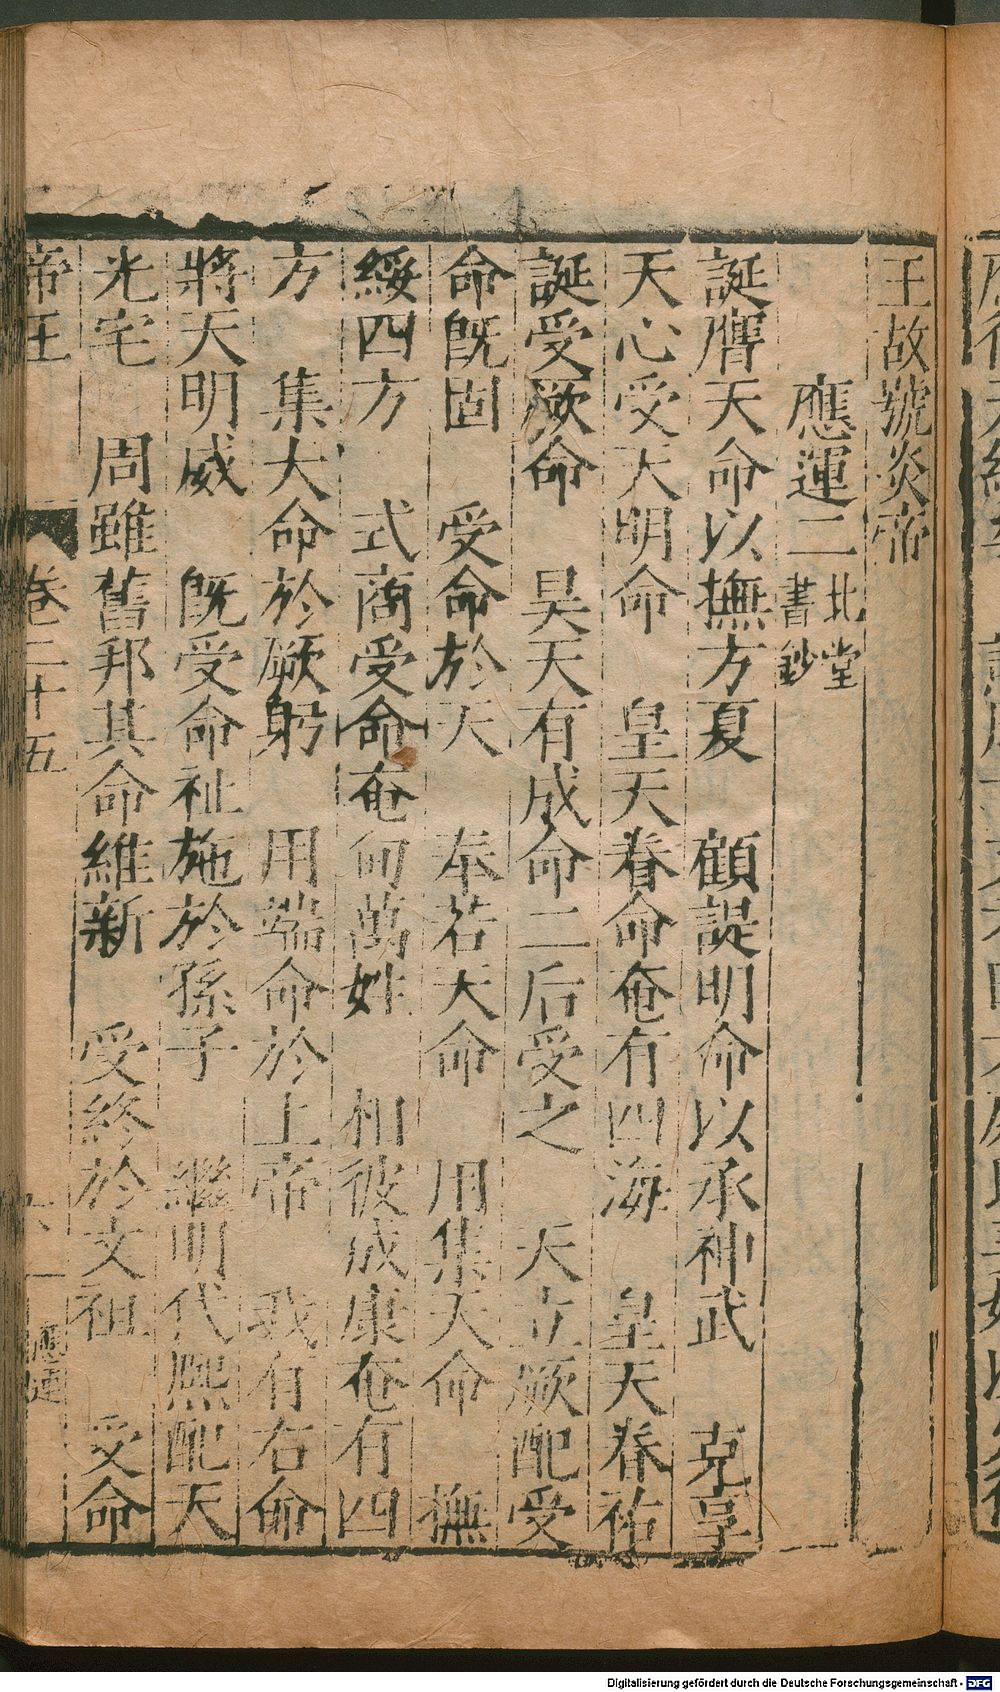 王故號炎帝
應運二 北堂書鈔
誕膺天命以撫方夏 顧諟明命以承神武 克享
天心受天明命 皇天眷命奄有四海 皇天眷祐
誕受厥命 昊天有成命二后受之 天立厥配受
命既固 受命於天 奉若天命 用集天命 撫
綏四方 式商受命奄甸萬姓 相彼成康奄有四
方 集大命於厥躬 用端命於上帝 我有右命
將天明威 既受命祉施於孫子 繼明代熙配天
光宅 周雖舊邦其命維新 受終於文祖 受命
帝王 卷二十五 應運
Digitalisierung gefördert durch die Deutsche Forschungsgemeinschaft - DFG